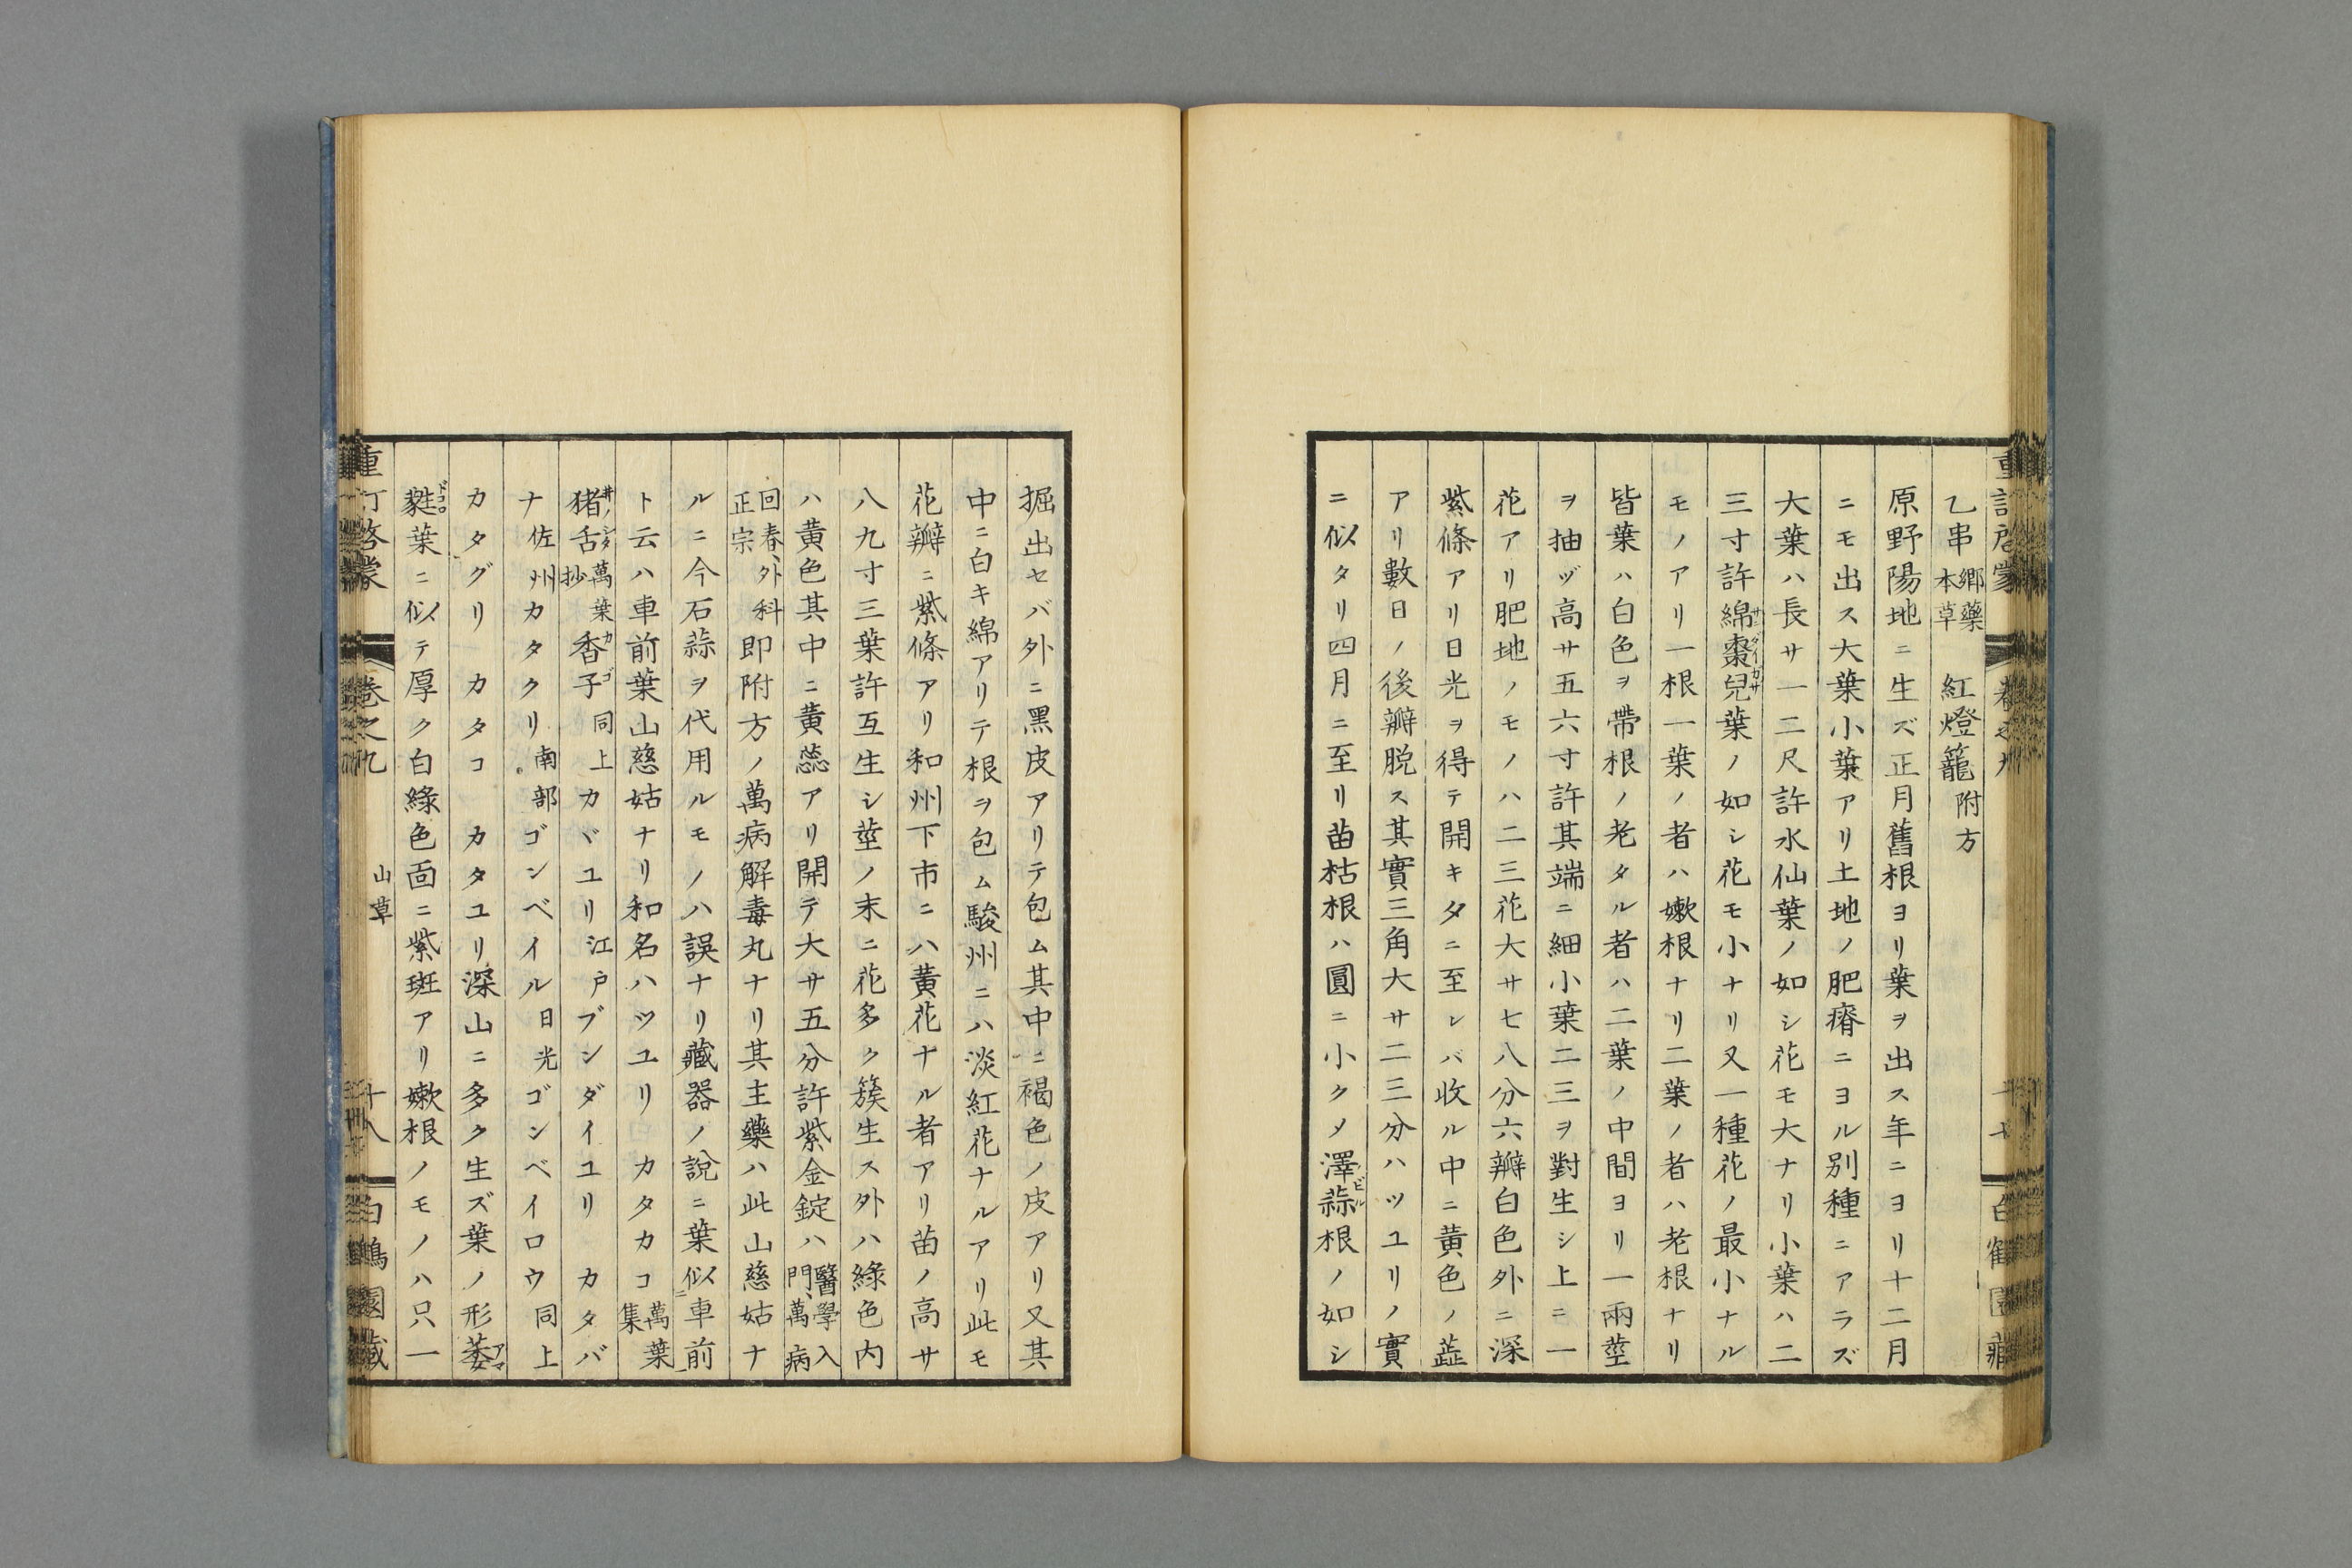 乙串郷藥本草 紅燈籠附方
原野陽地ニ生ズ正月舊根ヨリ葉ヲ出ス年ニヨリ十二月
ニモ出ス大葉小葉アリ土地ノ肥瘠ニヨル別種ニアラズ
大葉ハ長サ一二尺許水仙葉ノ如シ花モ大ナリ小葉ハ二
三寸許綿棗兒葉ノ如シ花モ小ナリ又一種花ノ最小ナル
モノアリ一根一葉ノ者ハ嫰根ナリ二葉ノ者ハ老根ナリ
皆葉ハ白色ヲ帶根ノ老タル者ハ二葉ノ中間ヨリ一兩莖
ヲ抽ヅ高サ五六寸許其端ニ細小葉二三ヲ對生シ上ニ一
花アリ肥地ノモノハ二三花大サ七八分六瓣白色外ニ深
紫條アリ日光ヲ得テ開キタニ至レバ收ル中ニ黄色ノ蕋
アリ數日ノ後瓣脱ス其實三角大サ二三分ハツユリノ實
ニ似タリ四月ニ至リ苗枯根ハ圓ニ小クメ澤蒜根ノ如シ
掘出セバ外ニ黑皮アリテ包ム其中ニ褐色ノ皮アリ又其
中ニ白キ綿アリテ根ヲ包ム駿州ニハ淡紅花ナルアリ此モ
花瓣ニ紫條アリ和州下市ニハ黄花ナル者アリ苗ノ高サ
八九寸三葉許互生シ莖ノ末ニ花多ク簇生ス外ハ綠色内
ハ黄色其中ニ黄蕊アリ開テ大サ五分許紫金錠ハ醫學入門、萬病
回春、外科正宗即附方ノ萬病解毒丸ナリ其主藥ハ此山慈姑ナ
ルニ今石蒜ヲ代用ルモノハ誤ナリ藏器ノ說ニ葉似車前
ト云ハ車前葉山慈姑ナリ和名ハツユリ カタカコ萬葉集
猪舌萬葉抄香子同上カヾユリ江戸ブンダイユリ カタバ
ナ佐州カタクリ南部ゴンベイル日光ゴンベイロウ同上
カタグリ カタコ カタユリ深山ニ多ク生ズ葉ノ形萎
蕤葉ニ似テ厚ク白綠色面ニ紫斑アリ嫰根ノモノハ只一
重訂啓蒙 卷之九 山草 十八